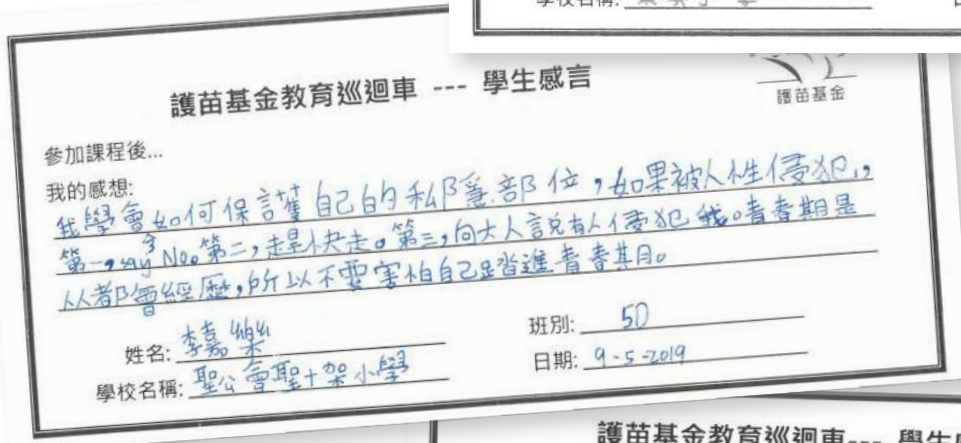 學校名稱:
護苗基金教育巡迴車 --- 學生感言
護苗基金
參加課程後...
我的感想:
我學會如何保護自己的私隱部位，如果被人性侵犯，
第一，say No。第二，趕快走。第三，向大人說有人侵犯我。青春期是
人人都會經歷，所以不要害怕自己踏進青春期。
姓名: 李嘉樂
班別: 5D
學校名稱: 聖公會聖十架小學
日期: 9-5-2019
護苗基金教育巡迴車--- 學生